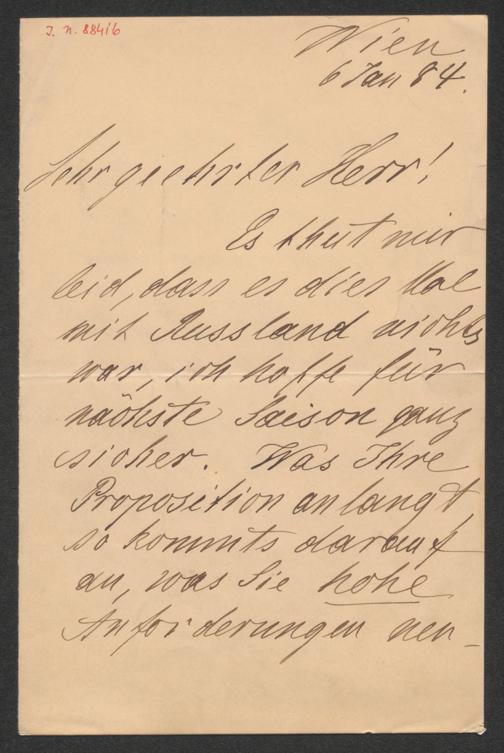 J. N. 88416
Wien
6 Jan 84.
Sehr geehrter Herr!
Es thut mir
leid, dass es dies Mal
mit Russland nichts
war, ich hoffe für
nächste Saison ganz
sicher. Was Ihre
Proposition anlangt,
so kommts darauf
an, was Sie hohe
Anforderungen nen-